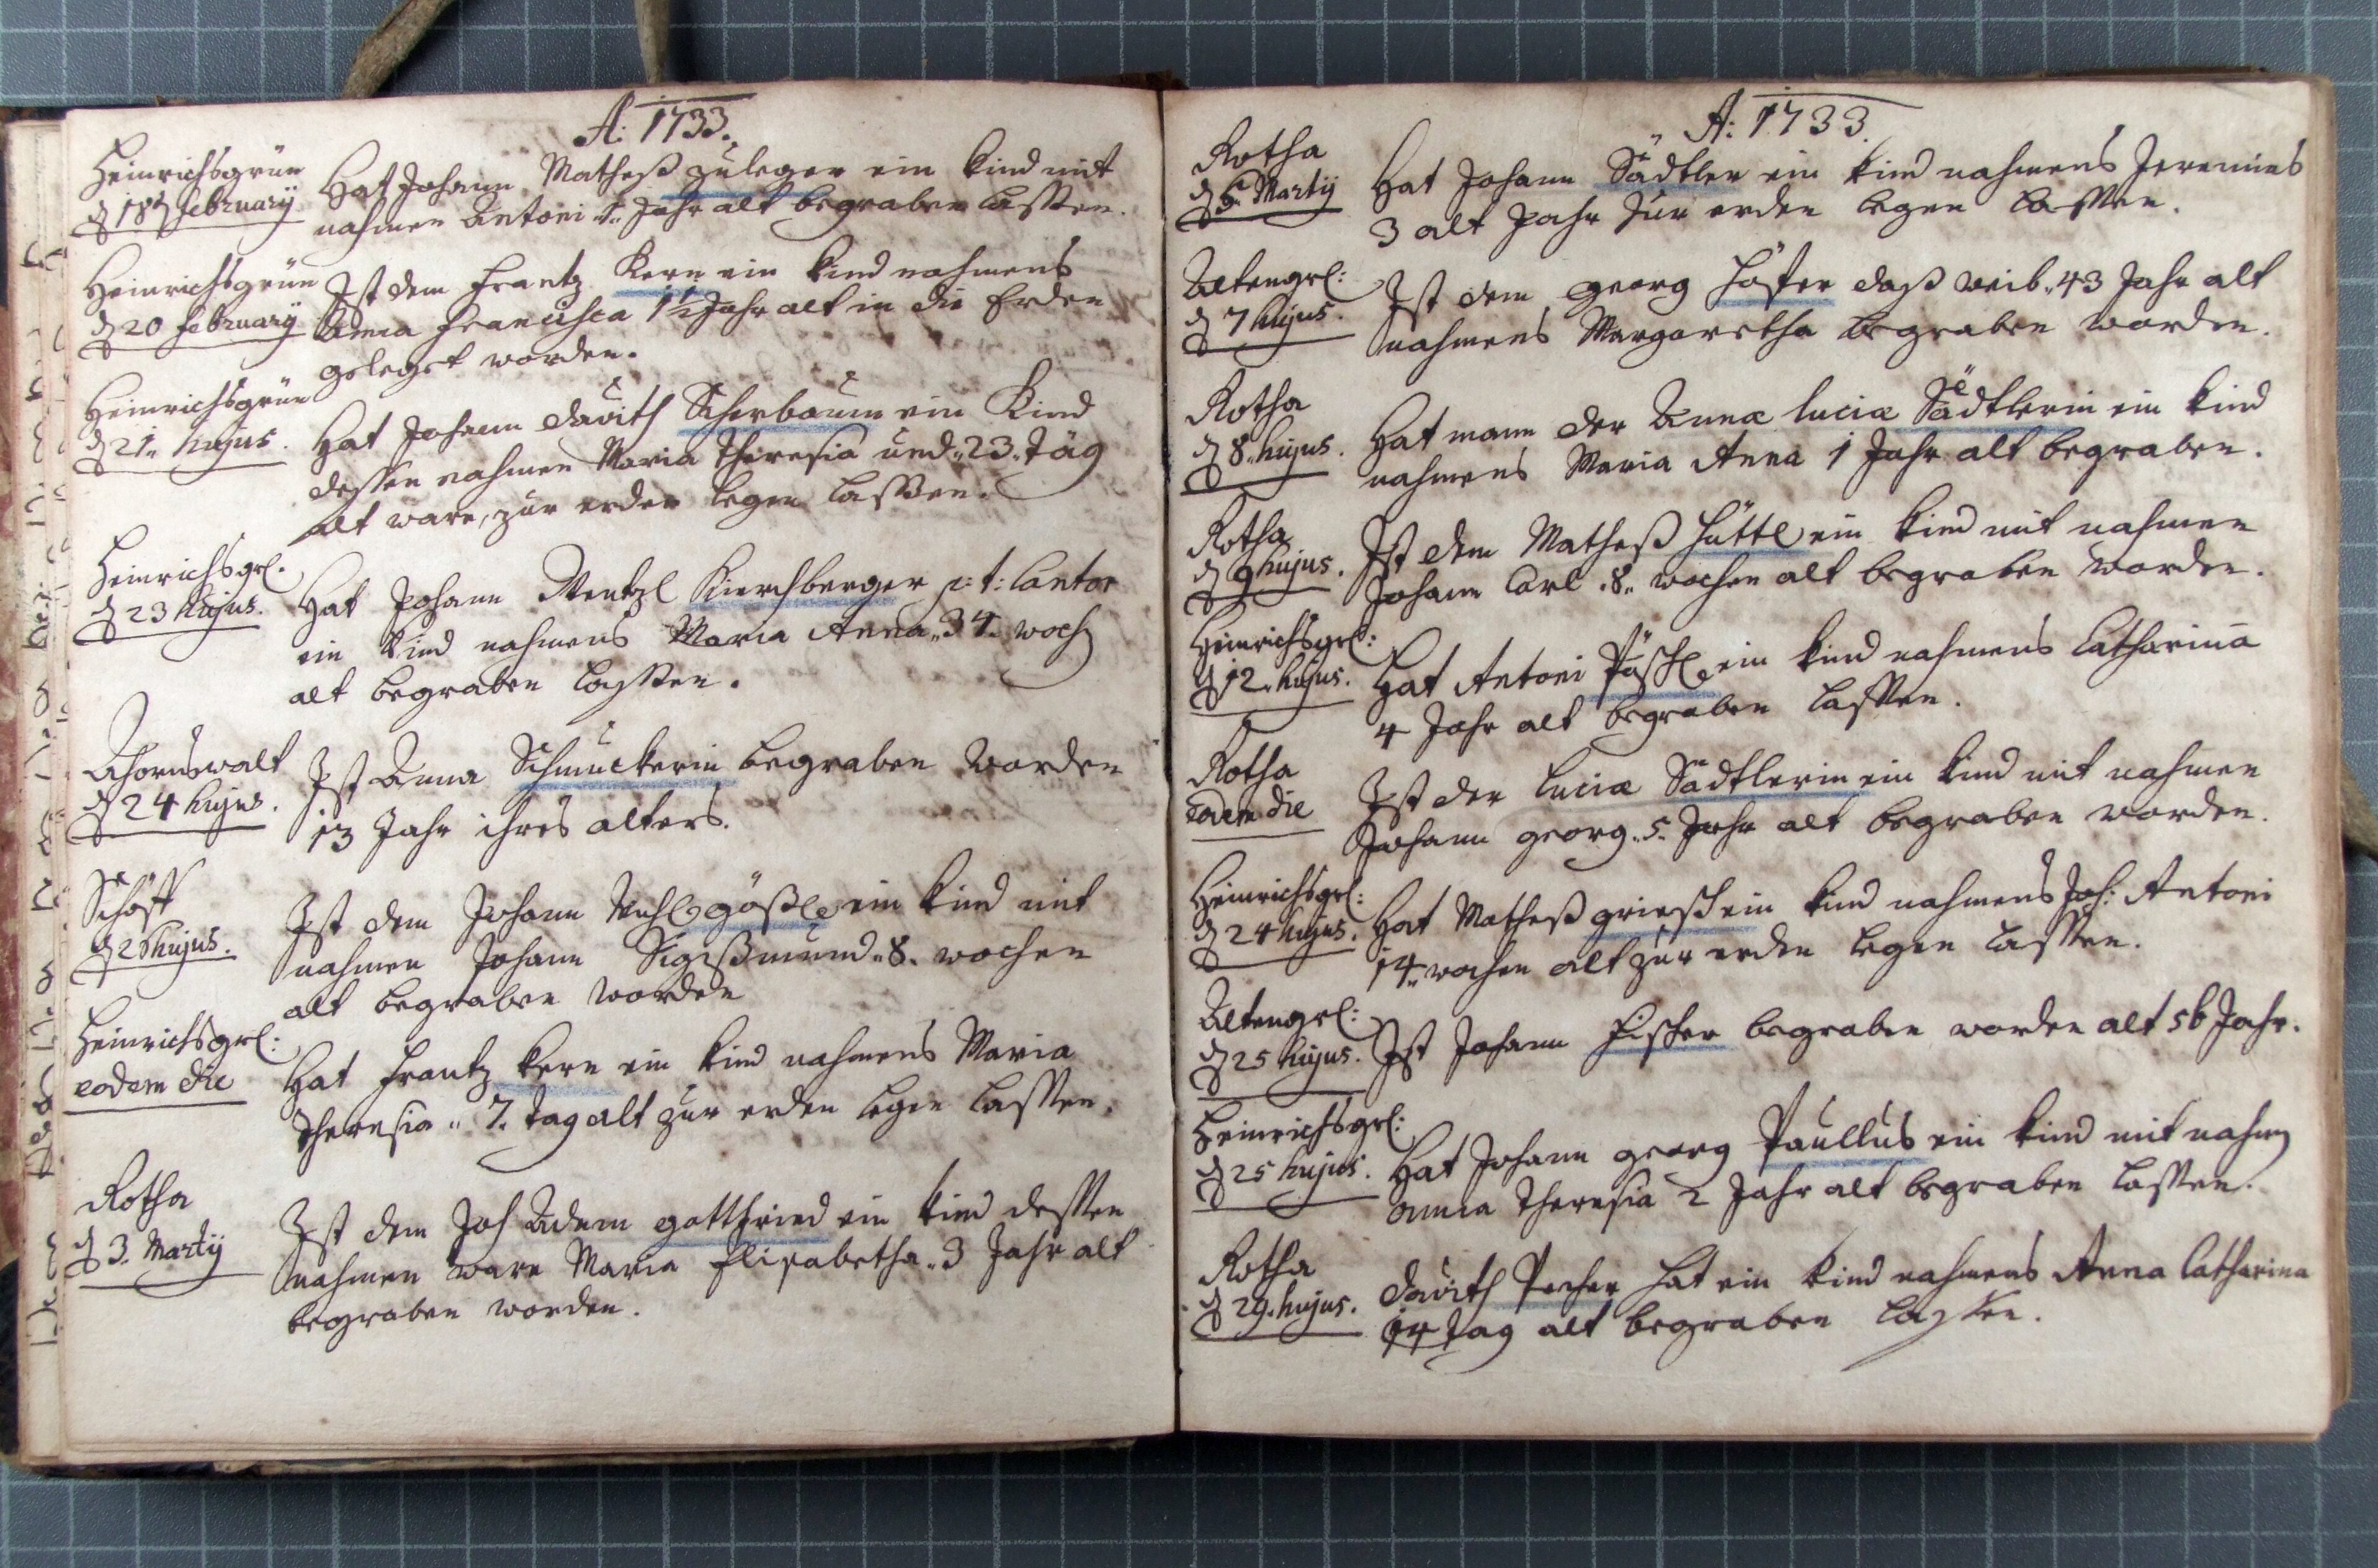 A: 1733.
Heinrichsgrün
d 18t february
Hat Johann Matheß Zuleger ein kind mit
nahmen Antoni Jahr alt begraben lassen.
Heinrichsgrün
d 20 february
Ist dem Frantz Kern ein kind nahmens
Anna Francisca 1½ Jahr alt in die Erden
geleget worden.
Heinrichsgrün
d 21. hujus.
Hat Johann Davith Scherbaum ein Kind
dessen nahmen Maria Theresia und 23. Täg
alt ware, zur erden legen lassen.
Heinrichsgrl.
d 23 hujus.
Hat Johann Wentzl Kirschberger p: t: Cantor
ein kind nahmens Maria Anna 34. woch
alt begraben lassen.
Ahornswalt
d 24 hujus.
Ist Anna Schmuckerin begraben worden
13 Jahr ihres alters.
Schöff
d 26 hujus.
Ist dem Johann gößl ein kind mit
nahmen Johann Sigißmund 8. wochen
alt begraben worden
Heinrichsgrl:
eodem die
Hat Frantz Kern ein kind nahmens Maria
Theresia 7. tag alt zur erden legen lassen.
Rotha
d 3. Martij
Ist dem Joh Adam gottfried ein kind dessen
nahmen ware Maria Elisabetha 3 Jahr alt
begraben worden.
A: 1733.
Rotha
d 6. Martij
Hat Johann Sädtler ein kind nahmens Jeremias
3 alt Jahr zur erden legen lassen.
Altengrl:
d 7 hujus.
Ist dem georg Höfer daß weib 43 Jahr alt
nahmens Margaretha begraben worden.
Rotha
d 8. hujus.
Hat mann der Annæ luciæ Sädtlerin ein kind
nahmens Maria Anna 1 Jahr alt begraben.
Rotha
d 9 hujus.
Ist dem Matheß Hüttl ein kind mit nahmen
Johann Carl 8. wochen alt begraben worden.
Heinrichsgrl:
d 12. hujus.
Hat Antoni Pöschl ein kind nahmens Catharina
4 Jahr alt begraben lassen.
Rotha
eodem die
Ist der luciæ Sädtlerin ein kind mit nahmen
Johann georg 5. Jahr alt begraben worden.
Heinrichsgrl:
d 24 hujus.
Hat Matheß ein kind nahmens Joh: Antoni
14. wochen alt zur erden legen lassen.
Altengrl:
d 25 hujus.
Ist Johann Fischer begraben worden alt 56 Jahr.
Heinrichsgrl:
d 25 hujus.
Hat Johann georg Paullus ein kind mit nahmen
anna Theresia 2 Jahr alt begraben lassen.
Rotha
d 29. hujus.
Davith Pecher hat ein kind nahmens Anna Catharina
14 tag alt begraben lassen.